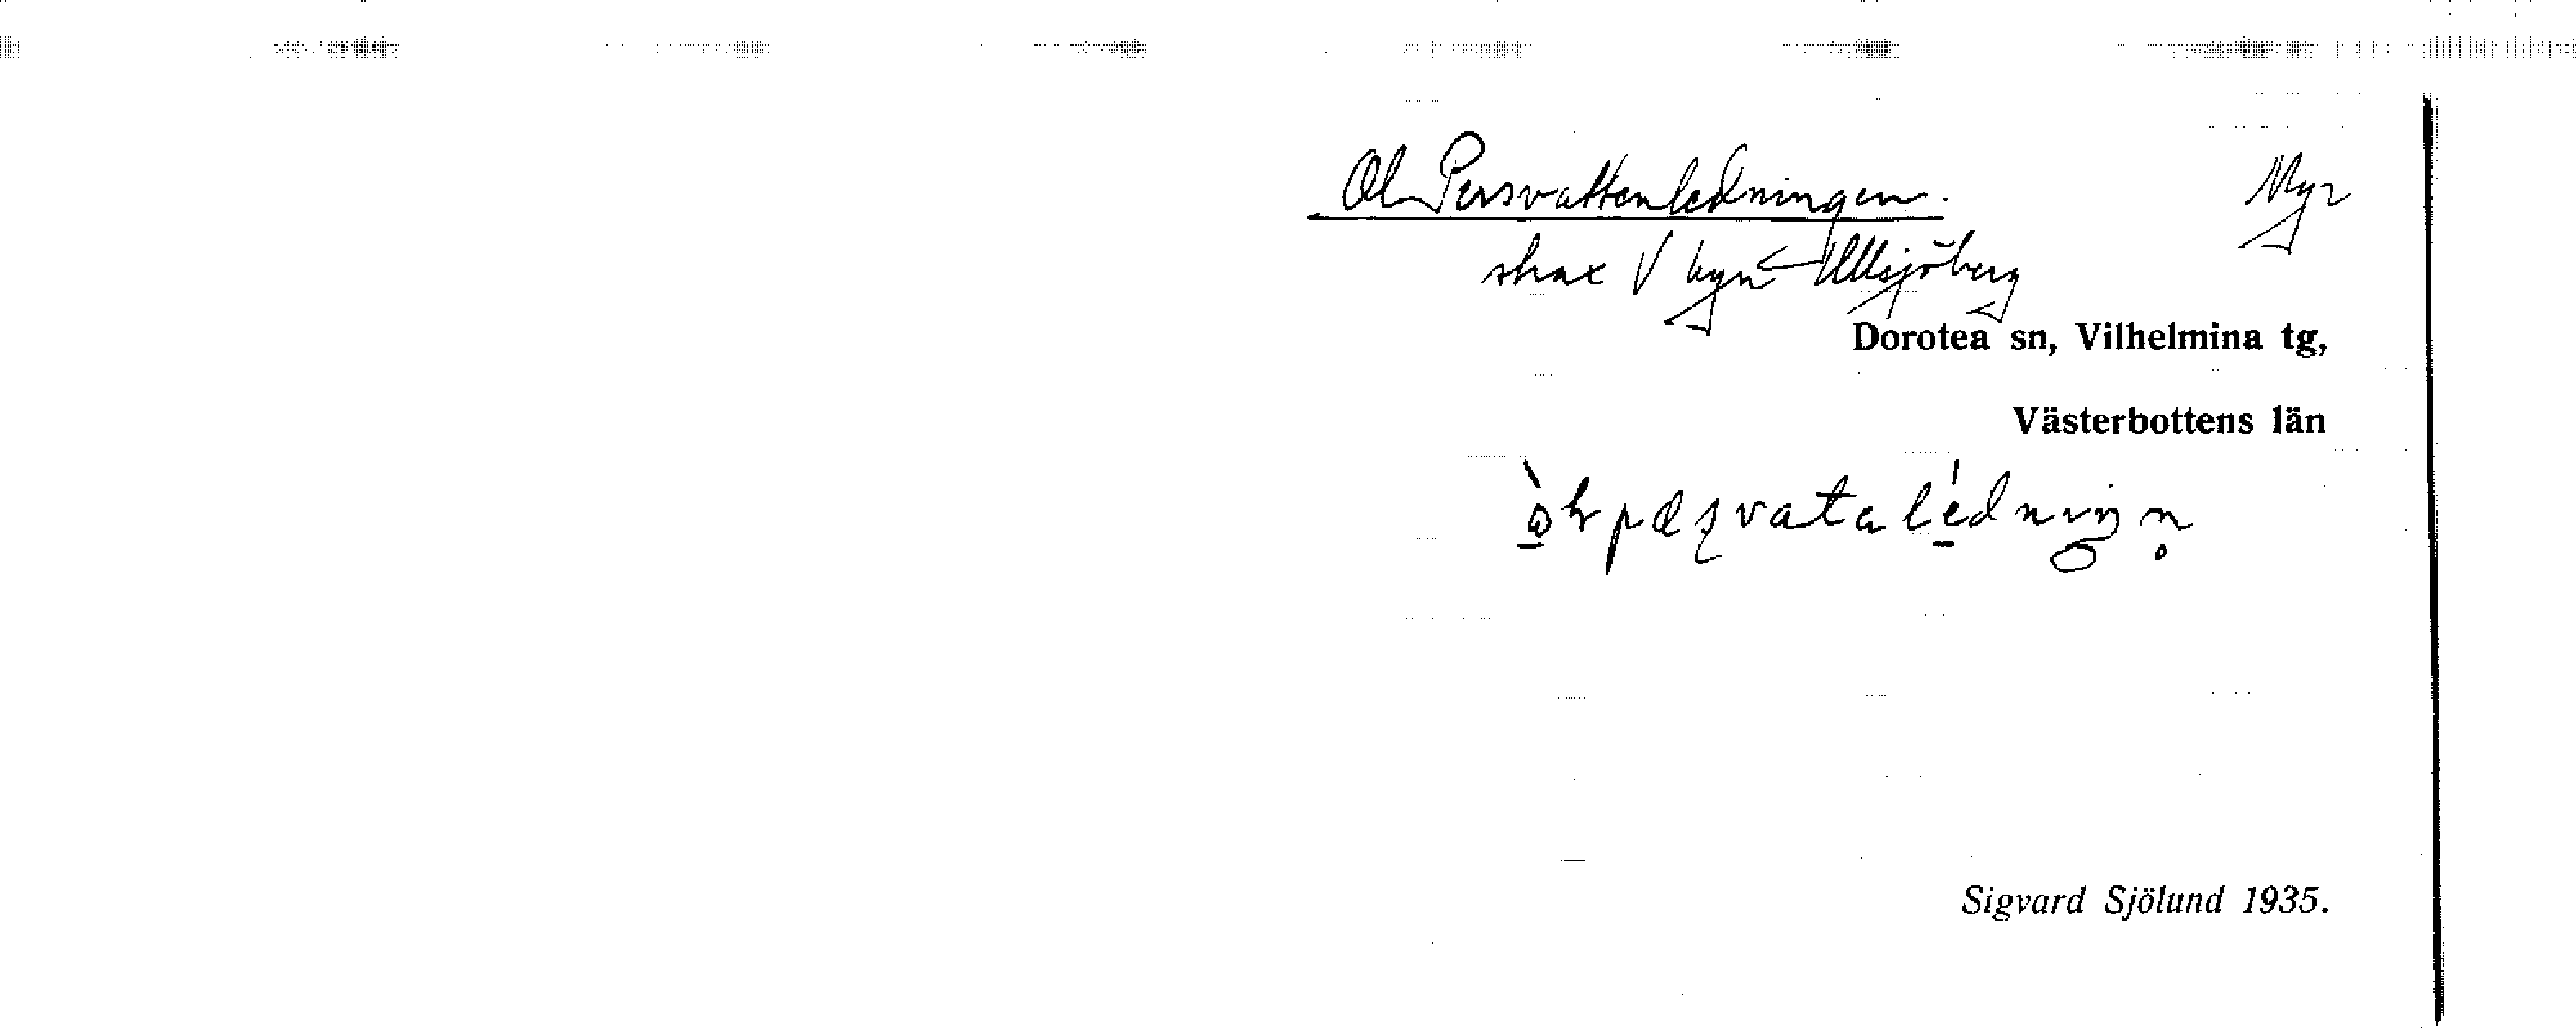 Ol-Persvattenledningen. Myr
strax V byn Ullsjöberg
Dorotea sn, Vilhelmina tg,
Västerbottens län
Sigvard Sjölund 1935.